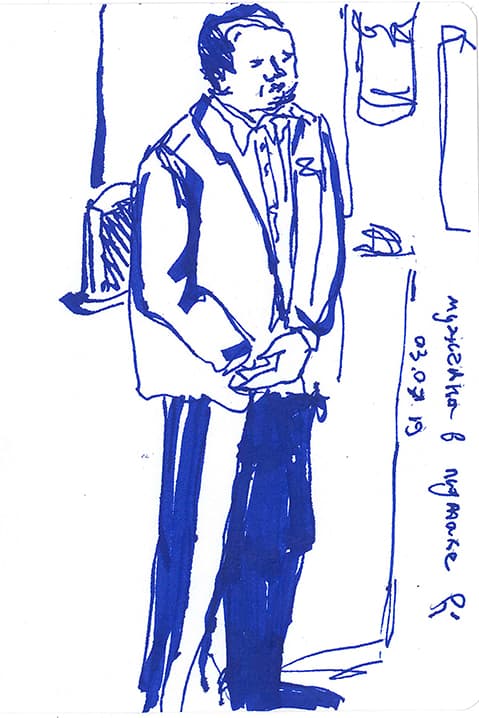 мужчина в пиджаке
03.07.19